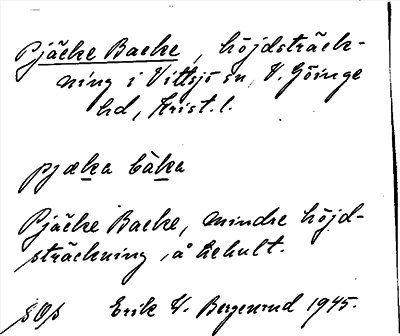 Pjäcke Backe, höjdsträck-
ning i Vittsjö sn, V. Göinge
hd, Krist. l.
pjæka baka
Pjäcke Backe, mindre höjd-
sträckning, å Rehult.
Erik W. Bergenrud 1945.